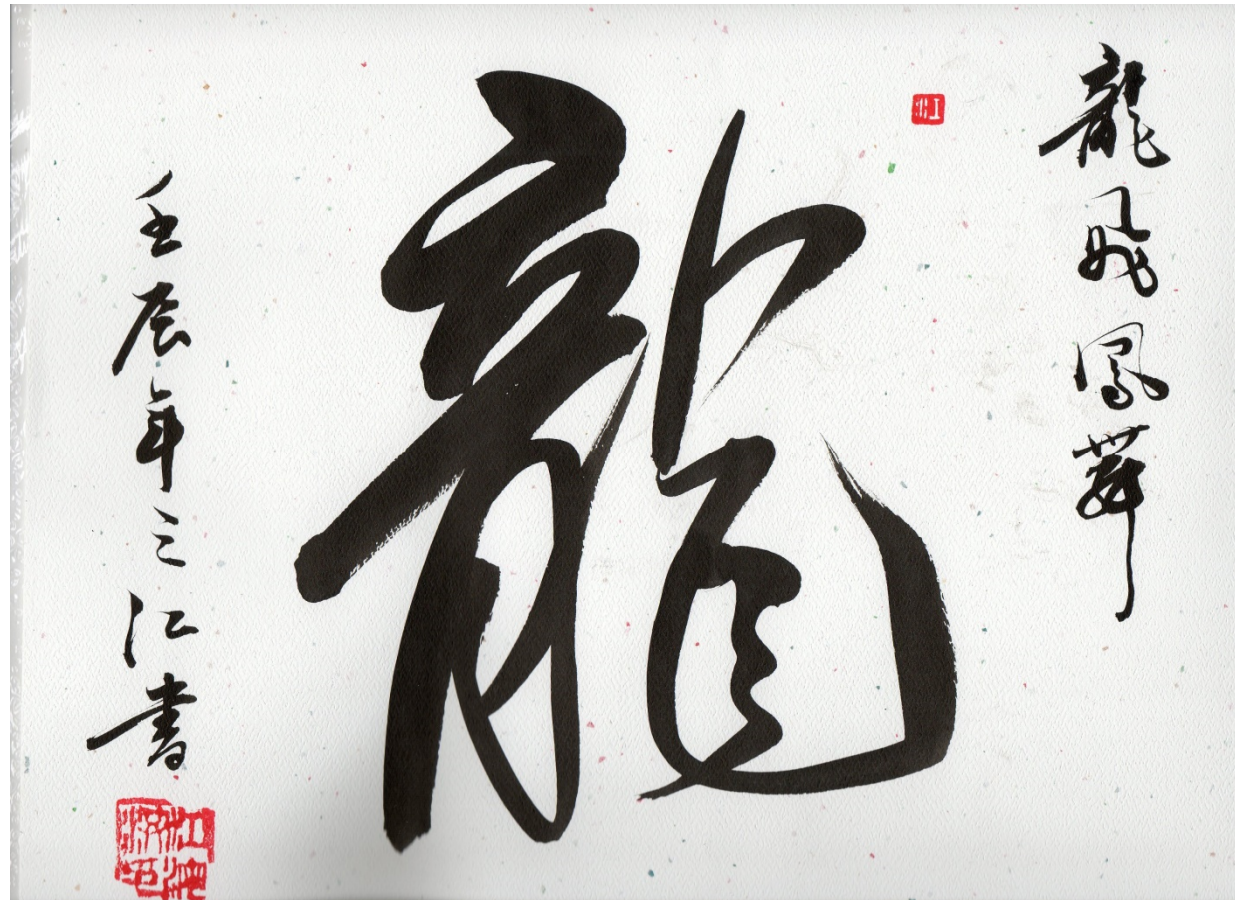 龍飛鳳舞
龍
壬辰年之江書
江